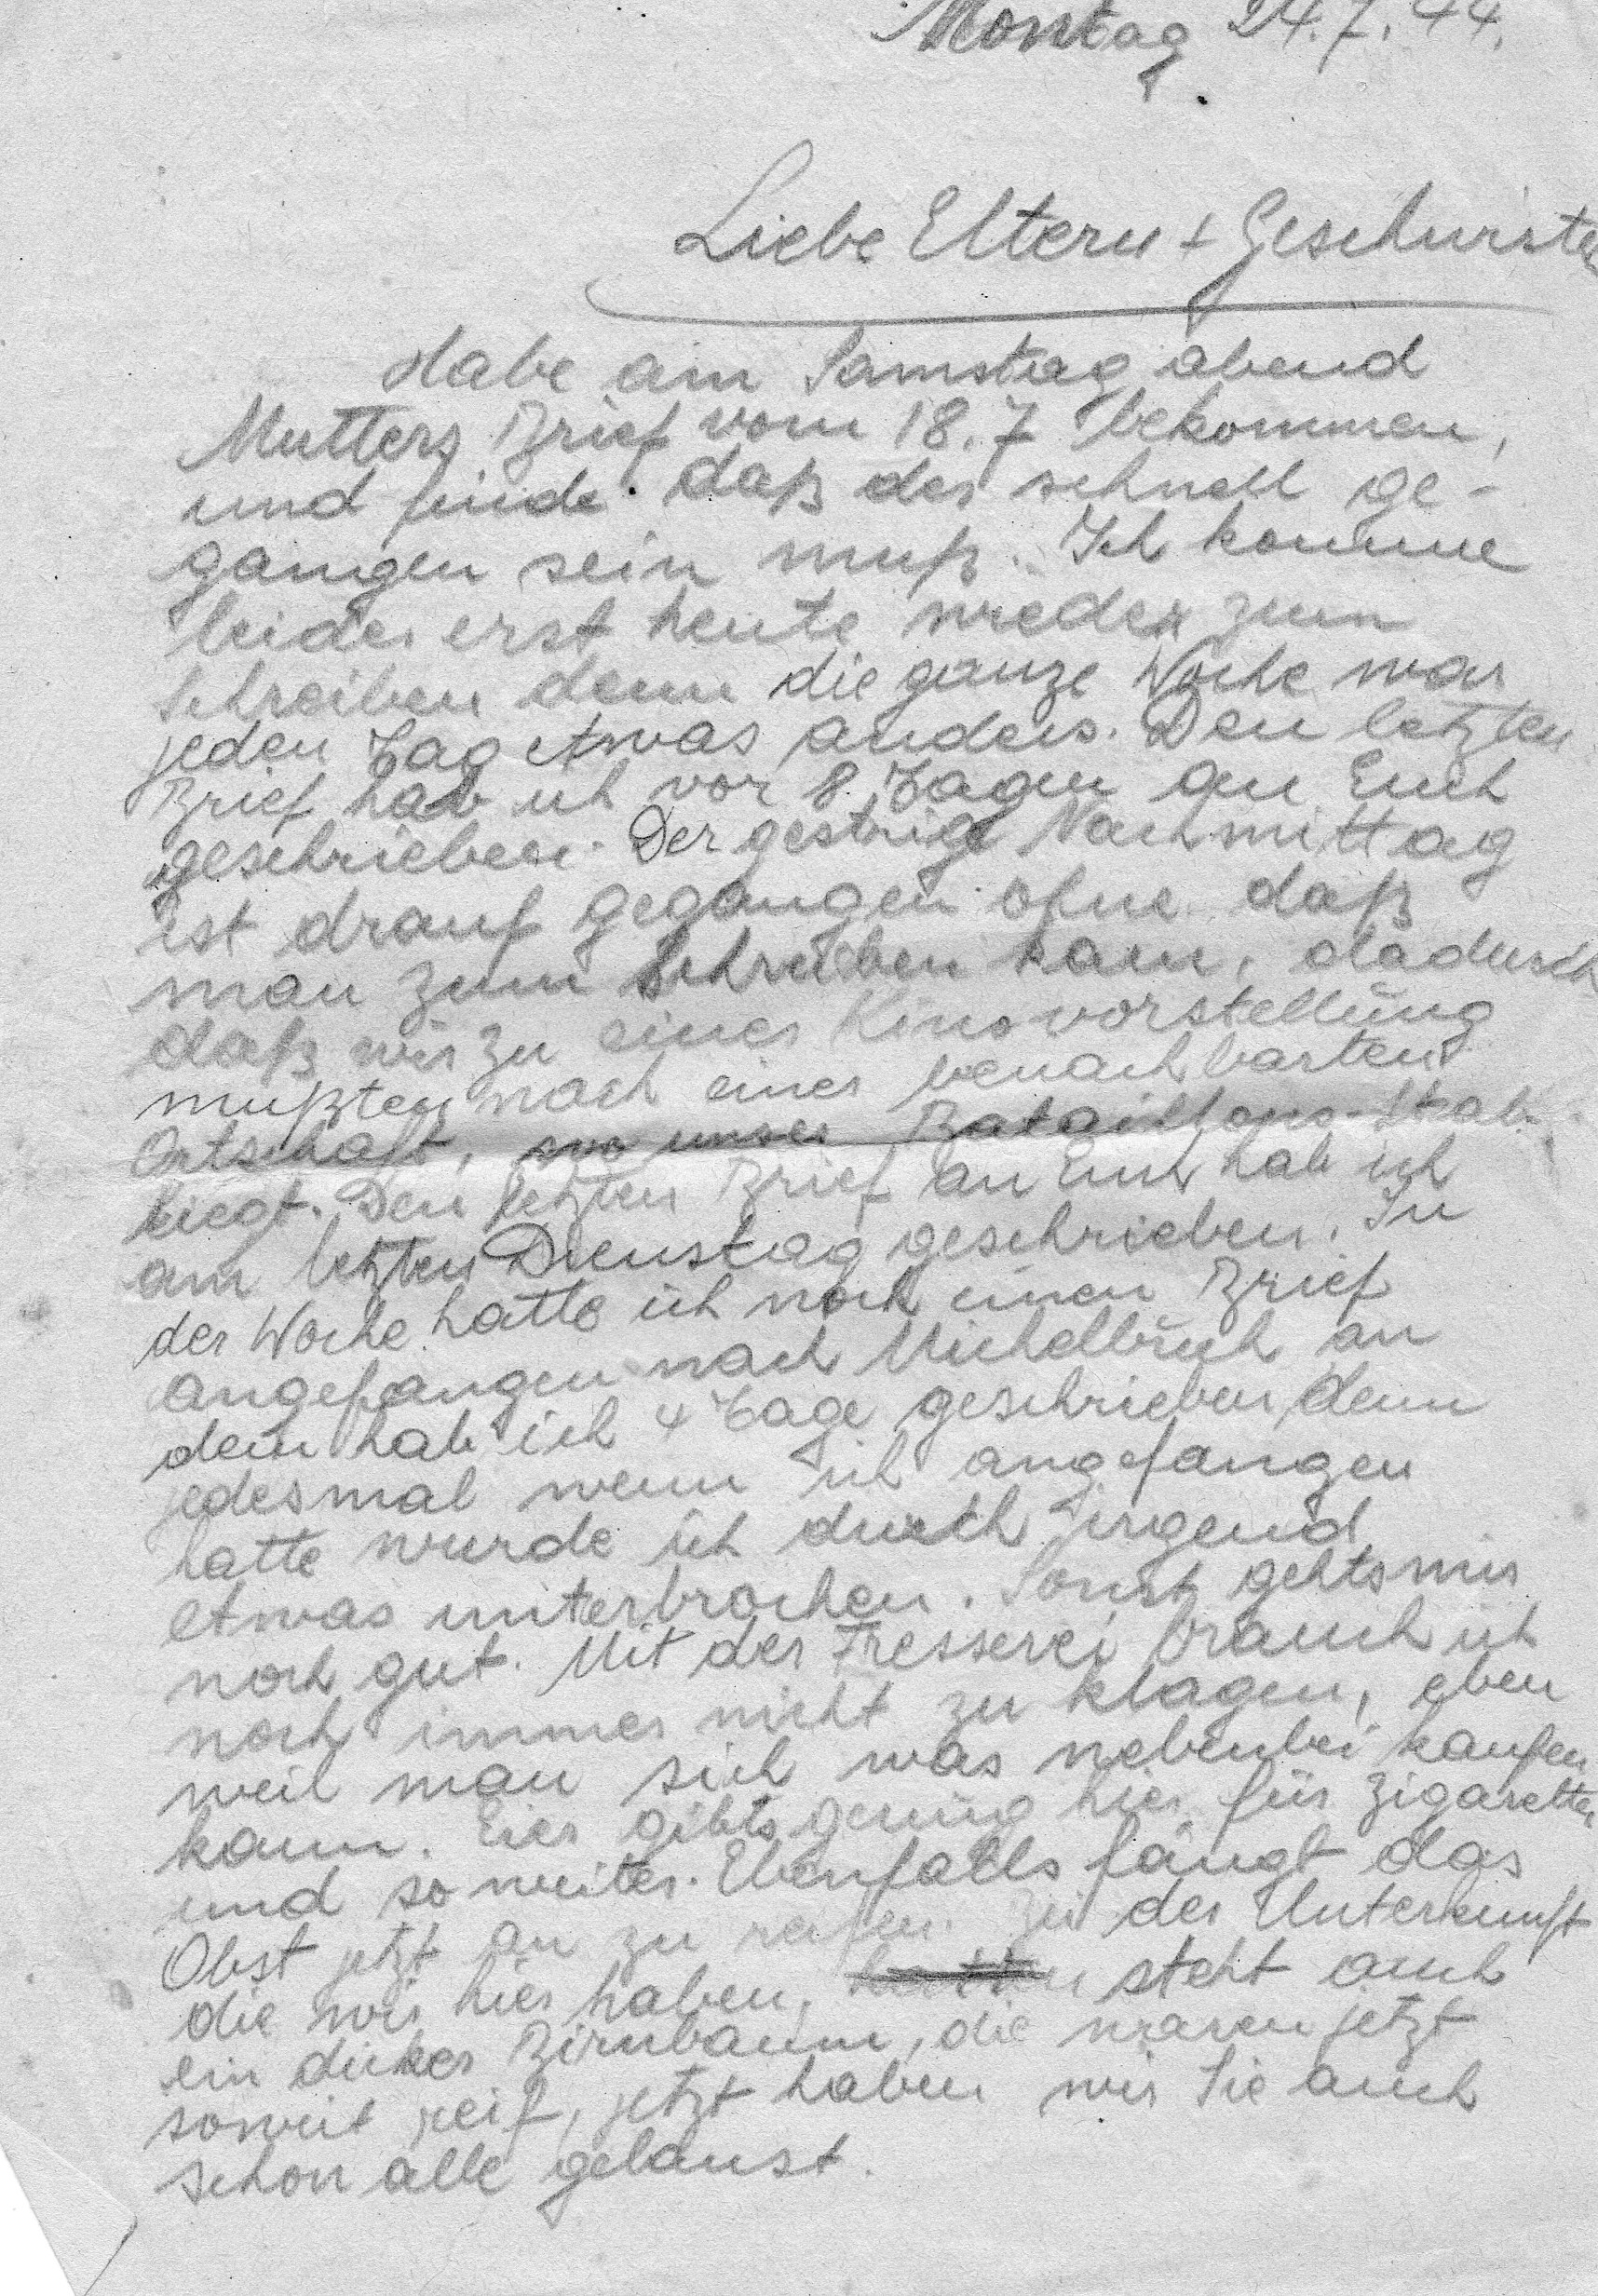 Montag 24.7.44.
Liebe Eltern + Geschwister
Habe am Samstag abend
Mutters Brief vom 18.7 bekommen,
und finde daß der schnell ge-
gangen sein muß. Ich komme
leider erst heute wieder zum
schreiben denn die ganze Woche war
jeden Tag etwas anders. Den letzten
Brief hab ich vor 8 Tagen an Euch
geschrieben. Der gestrige Nachmittag
ist drauf gegangen ohne daß
man zum Schreiben kam, dadurch
daß wir zu einer Kinovorstellung
mußten nach einer benachbarten
Ortschaft, wo unser Bataillons-Stab
liegt. Den letzten Brief an Euch hab ich
am letzten Dienstag geschrieben. In
der Woche hatte ich noch einen Brief
angefangen nach Michelbüch an
dem hab ich 4 Tage geschrieben denn
jedesmal wenn ich angefangen
hatte wurde ich durch irgend
etwas unterbrochen. Sonst gehts mir
noch gut. Mit der Fresserei brauch ich
noch immer nicht zu klagen, eben
weil man sich was nebenbei kaufen
kann. Eier gibts genug hier für Zigaretten
und so weiter. Ebenfalls fängt das
Obst jetzt an zu reifen. Bei der Unterkunft
die wir hier haben, steht auch
ein dicker Birnbaum, die waren jetzt
soweit reif, jetzt haben wir Sie auch
schon alle gelaust.